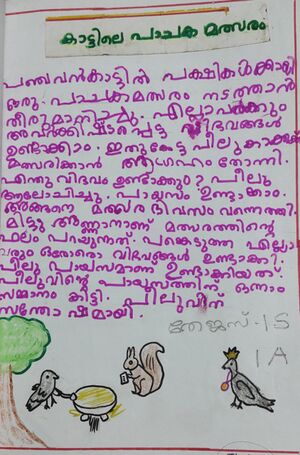 കാട്ടിലെ പാചക മത്സരം
പഞ്ചവൻകാട്ടിൽ പക്ഷികൾക്കായി
ഒരു പാചകമത്സരം നടത്താൻ
തീരുമാനിച്ചു. എല്ലാവർക്കും
അവർക്കിഷ്ടപ്പെട്ട വിഭവങ്ങൾ
ഉണ്ടാക്കാം. ഇതുകേട്ട പീലു കാക്കക്ക്
മത്സരിക്കാൻ ആഗ്രഹം തോന്നി.
എന്തു വിഭവം ഉണ്ടാക്കും? പീലു
ആലോചിച്ചു. പായസം ഉണ്ടാക്കാം.
അങ്ങനെ മത്സര ദിവസം വന്നെത്തി.
മിട്ടു അണ്ണാനാണ് മത്സരത്തിന്റെ
ഫലം പറയുന്നത്. പങ്കെടുത്ത എല്ലാ
വരും ഓരോരോ വിഭവങ്ങൾ ഉണ്ടാക്കി.
പീലു പായസമാണ് ഉണ്ടാക്കിയത്.
പീലുവിന്റെ പായസത്തിന് ഒന്നാം
സമ്മാനം കിട്ടി. പീലുവിന്
സന്തോഷമായി.
തേജസ്. S
1A